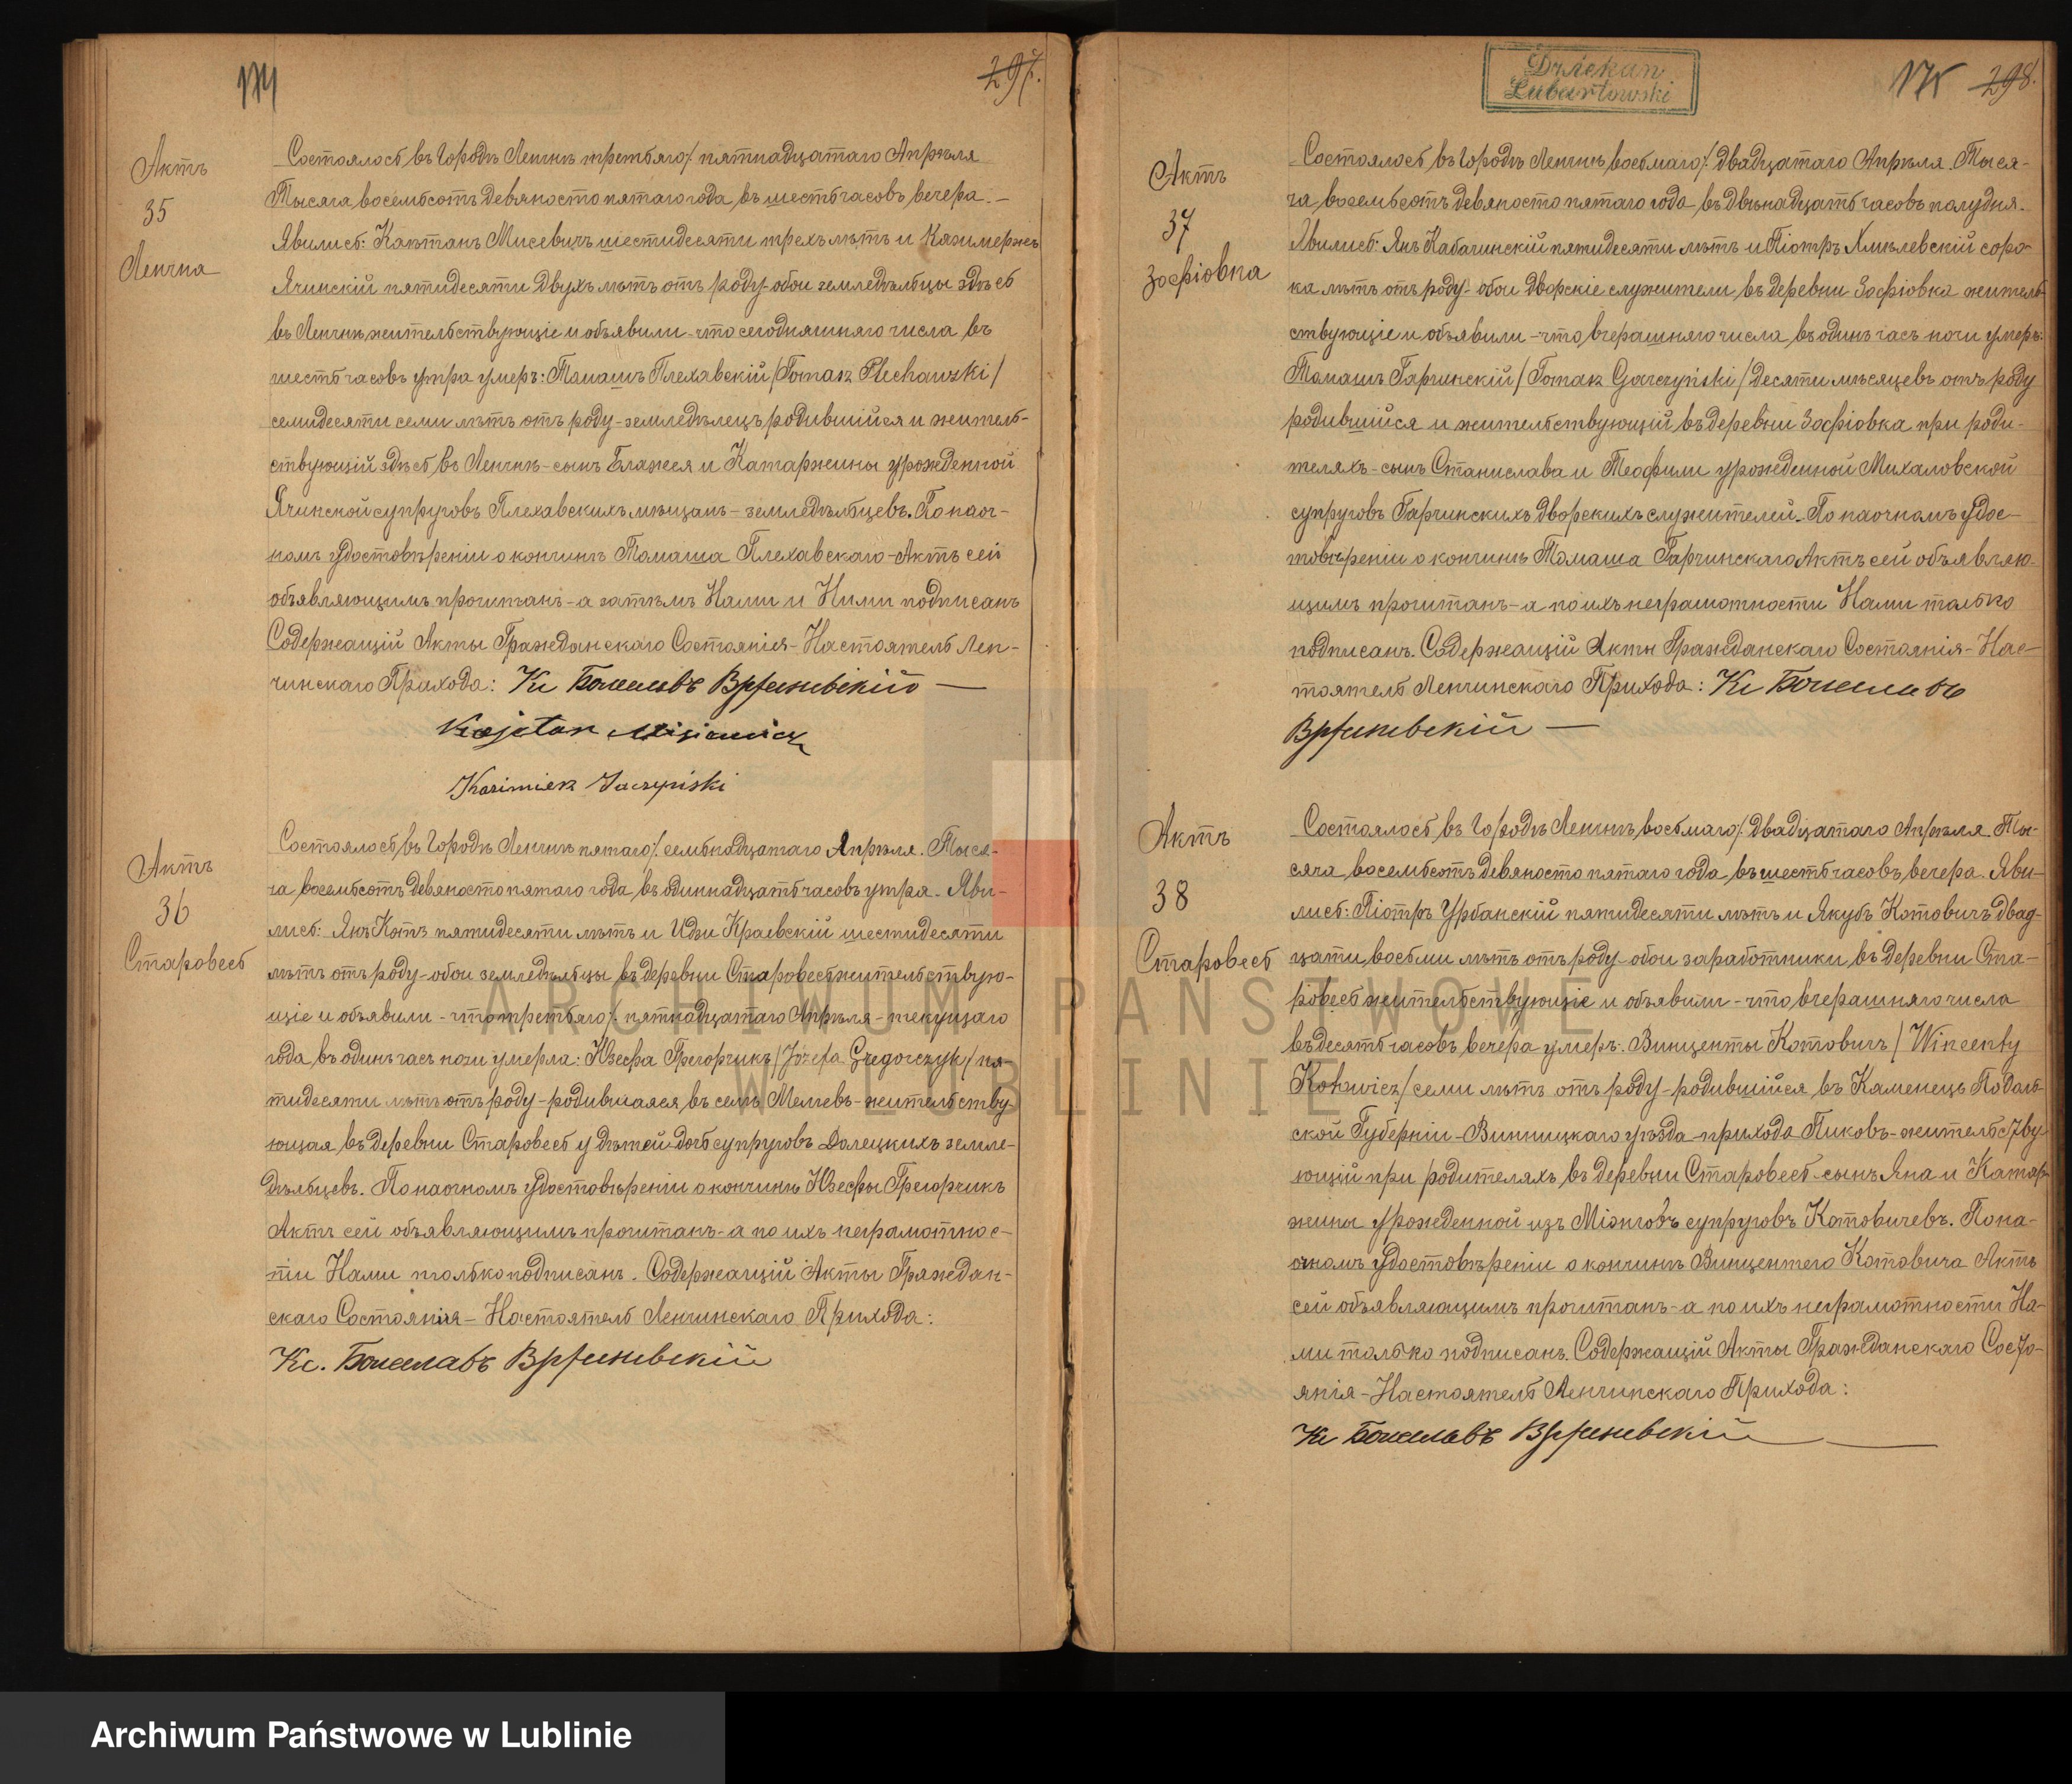 174
297.
Актъ
35
Ленчна
Состоялось въ Городѣ Ленчнѣ третьяго/ пятнадцатаго Апрѣля
Тысяча восемьсотъ девяносто пятаго года, въ шесть часовъ вечера. –
Явились: Каетанъ Мисевичъ шестидесяти трехъ лѣтъ и Казимержъ
Ячинскій пятидесяти двухъ лѣтъ отъ роду - обои земледѣльцы здѣсь
въ Ленчнѣ жительствующіе и объявили - что сегодняшняго числа въ
шесть часовъ утра умеръ: Томашъ Плехавскій /Tomasz Plechawski/
семидесяти семи лѣтъ отъ роду - земледѣлецъ родившійся и житель-
ствующій здѣсь въ Ленчнѣ - сынъ Блажея и Катаржины урожденной
Ячинской супруговъ Плехавскихъ мѣщанъ - земледѣльцевъ. По наоч-
номъ удостовѣреніи о кончинѣ Томаша Плехавскаго - Актъ сей
объявляющимъ прочитанъ - а затѣмъ Нами и Ними подписанъ
Содержащій Акты Гражданскаго Состоянія - Настоятель Лен-
чинскаго Прихода: Кс Болеславъ Врженевскій —
Kajetan Misiewicz
Kazimierz Jaczyński
Актъ
36
Старовесь
Состоялось въ Городѣ Ленчнѣ пятаго/ семьнадцатаго Апрѣля. Тыся-
ча восемьсотъ девяносто пятаго года, въ одиннадцать часовъ утра. Яви-
лись: Янъ Котъ пятидесяти лѣтъ и Идзи Краевскій шестидесяти
лѣтъ отъ роду - обои земледѣльцы въ деревни Старовесь жительствую-
щіе и объявили - что третьяго/ пятнадцатаго Апрѣля - текущаго
года, въ одинъ часъ ночи умерла: Юзефа Грегорчикъ /Józefa Gregorczyk/ пя-
тидесяти лѣтъ отъ роду - родившаяся въ селѣ - жительству
ющая въ деревни Старовесь у дѣтей дочь супруговъ Долецкихъ земле-
дѣльцевъ. По наочномъ удостовѣреніи о кончинѣ Юзефы Грегорчикъ
Актъ сей объявляющимъ прочитанъ - а по ихъ неграмотнос-
ти Нами только подписанъ. Содержащій Акты Граждан-
скаго Состоянія - Настоятель Ленчинскаго Прихода:
Кс. Болеславъ Врженевскій
Dziekan
Lubartowski
175
298.
Актъ
37
Зофіовка
Состоялось въ Городѣ Ленчнѣ, восьмаго/ двадцатаго Апрѣля. Тыся-
ча восемьсотъ девяносто пятаго года, въ двѣнадцать часовъ полудня.
Явились: Янъ Кабачинскій пятидесяти лѣтъ и Піотръ Хмѣлевскій соро-
ка лѣтъ отъ роду - обои дворскіе служители въ деревни Зофіовка житель-
ствующіе и объявили - что вчерашняго числа, въ одинъ часъ ночи умеръ:
Томашъ Гарчинскій /Tomasz Garczyński/ десяти мѣсяцевъ отъ роду
родившійся и жительствующій въ деревни Зофіовка при роди-
теляхъ - сынъ Станислава и Теофили урожденной Михаловской
супруговъ Гарчинскихъ дворскихъ служителей. По наочномъ удос-
товѣреніи о кончинѣ Томаша Гарчинскаго Актъ сей объявляю-
щимъ прочитанъ - а по ихъ неграмотности Нами только
подписанъ. Содержащій Акты Гражданскаго Состоянія - Нас-
тоятель Ленчинскаго Прихода: Кс Болеславъ
Врженевскій —
Актъ
38
Старовесь
Состоялось въ Городѣ Ленчнѣ, восьмаго/ двадцатаго Апрѣля Ты-
сяча восемьсотъ девяносто пятаго года, въ шесть часовъ, вечера. Яви-
лись: Піотръ Урбанскій пятидесяти лѣтъ и Якубъ Котовичъ двад-
цати восьми лѣтъ отъ роду - обои заработники въ деревни Ста-
ровесь жительствующіе и объявили - что, вчерашняго числа
въ десять часовъ вечера умеръ: Винценты Котовичъ /Wincenty
Kotowicz/ семи лѣтъ отъ роду - родившійся въ Каменецъ Подоль-
ской Губерніи - Винницкаго уѣзда - прихода Пиковъ - жительству-
ющій при родителяхъ въ деревни Старовесь - сынъ Яна и Катар-
жины урожденной изъ супруговъ Котовичевъ. По на-
очномъ удостовѣреніи о кончинѣ Винцентего Котовича Актъ
сей объявляющимъ прочитанъ - а по ихъ неграмотности На-
ми только подписанъ. Содержащій Акты Гражданскаго Состо-
янія - Настоятель Ленчинскаго Прихода:
Кс Болеславъ Врженевскій —
ARCHIWUM PAŃSTWOWE
W LUBLINIE
Archiwum Państwowe w Lublinie